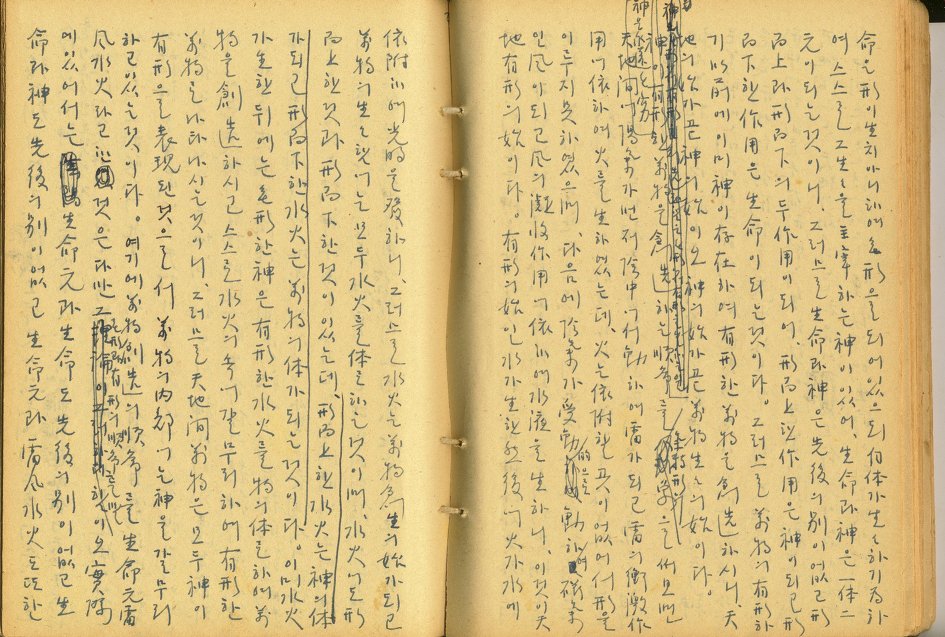 命은形이生치아니하매無形으로되어있으되自体가生生하기爲하
여스스로그生生을主宰하는神이있어, 生命과神은一体二
元이되는것이니, 그러므로生命과神은先後의別이없고形
而上과形而下의두作用이되어, 形而上한作用은神이되고形
而下한作用은生命이되는것이다. 그러므로萬物의有形하
기以前에이미神이存在하여有形한萬物을創造하시니, 天
地의始가곧神의始이오神의始가곧萬物生生의始이다.
神이有形한萬物을創造하는順序를
天地間에陽氣가먼저陰中에서動하매雷가되고雷의衝激作
用에依하여火를生하였는데, 火는依附할곳이없어서形을
이루지못하였으며, 다음에陰氣가受動的으로動하여
이風이되고風의凝收作用에依하여水液을生하니, 이것이天
地有形의始이다. 有形의始인水가生한然後에火가水에
依附하여光明을發하니, 그러므로水火는萬物發生의始가되고
萬物의生生함에는모두水火를体로하는것이며, 水火에도形
而上한것과形而下한것이있는데, 形而上한水火는神의体
가되고形而下한水火는萬物의体가되는것이다. 이미水火
가生한뒤에는無形한神은有形한水火를物의体로하여萬
物을創造하시고스스로水火의속에갈무리하여有形한
萬物로나타나시는것이니, 그러므로天地間萬物은모두神이
有形으로表現된것으로서 萬物의內部에는神을갈무리
하고있는것이다. 여기에萬物創造의順序를生命元雷
風水火라고한것은다만
에있어서는生命元과生命도先後의別이없고生
命과神도先後의別이없고生命元과雷風水火도또한